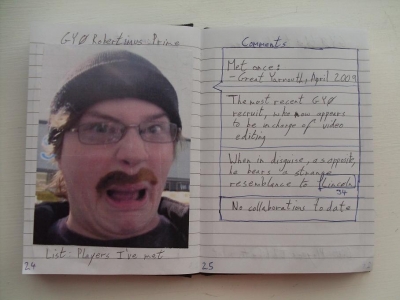 GYØ Robertimus Prime
List: Players I've met
24
Comments
Met once:
- Great Yarmouth, April 2009
The most recent GYØ
recruit, who now appears
to be in charge of video
editing
When in disguise, as opposite,
he bears a strange
resemblance to
34
No collaborations to date
25